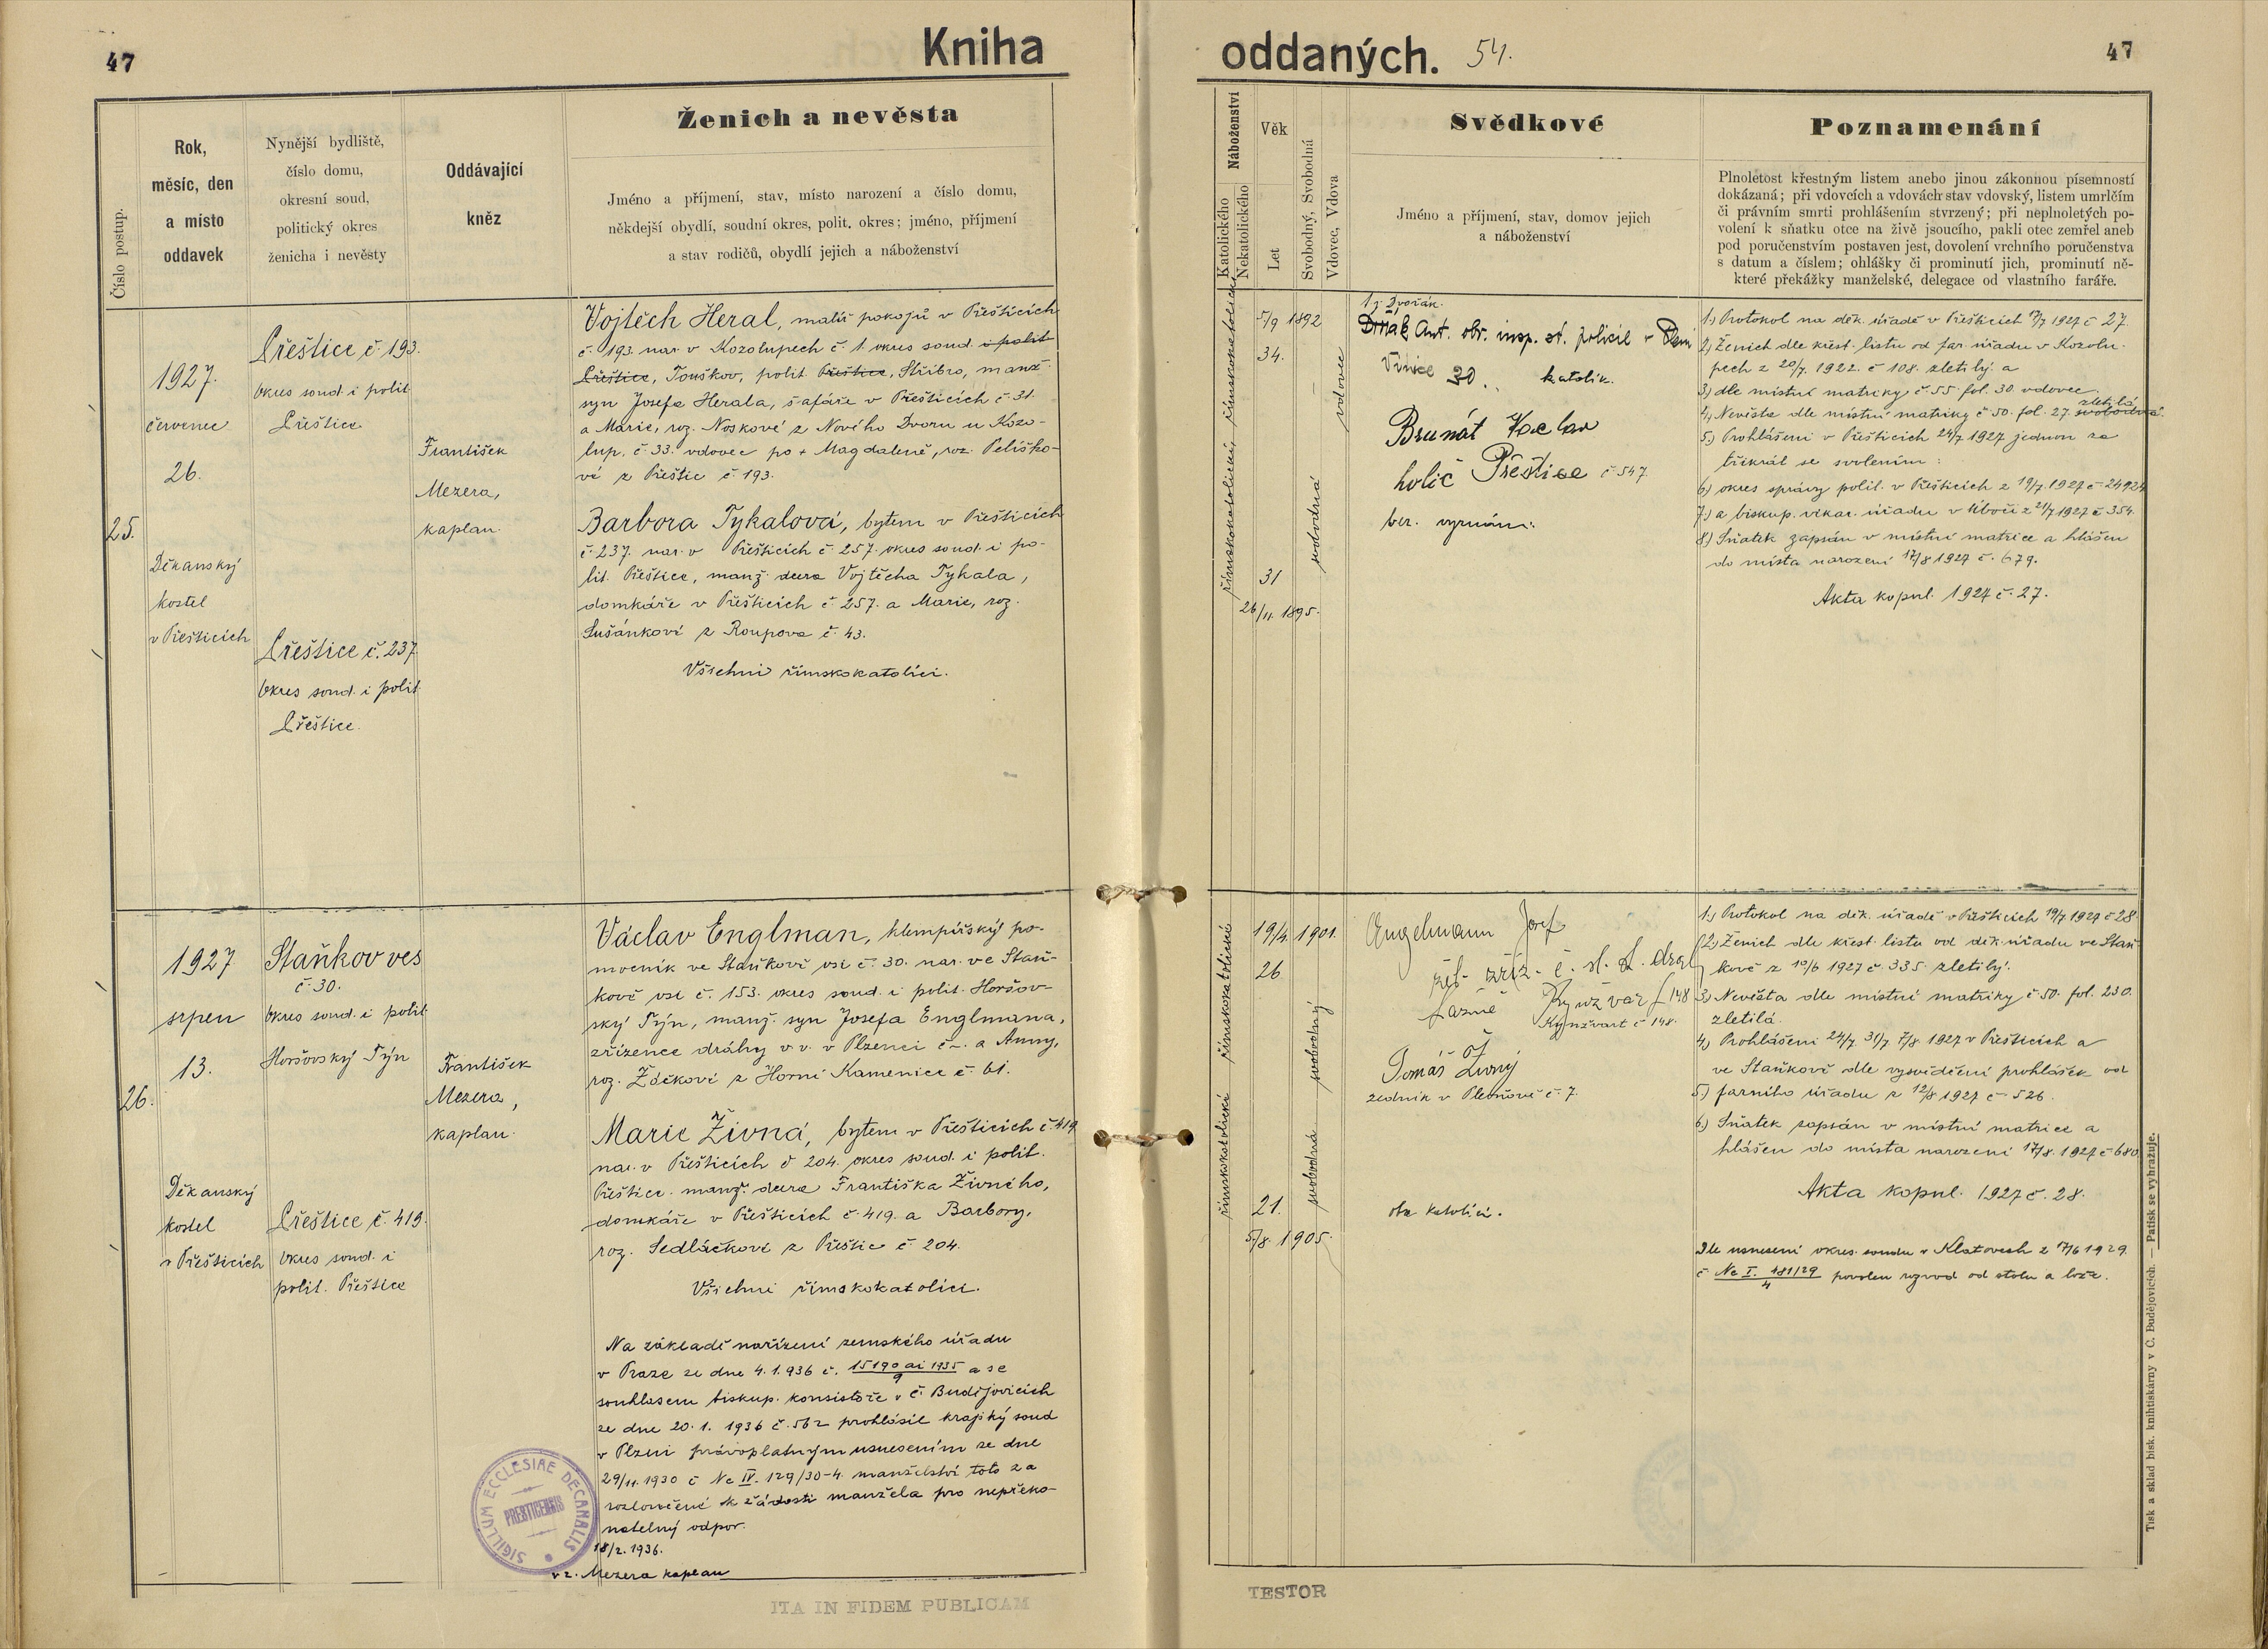 47
Kniha
Číslo postup.
Rok,
měsíc, den
a místo
oddavek
Nynější bydliště,
číslo domu,
okresní soud,
politický okres
ženicha i nevěsty
Oddávající
kněz
Ženich a nevěsta
Jméno a příjmení, stav, místo narození a číslo domu,
někdejší obydlí, soudní okres, polit. okres; jméno, příjmení
a stav rodičů, obydlí jejich a náboženství
25.
1927.
červenec
26.
Děkanský
kostel
v Přešticích
Přeštice č. 193.
okres soud. i polit
Přeštice
Přeštice č. 237
okres soud. i polit.
Přeštice.
František
Mezera,
kaplan.
Vojtěch Heral, malíř pokojů v Přešticích
č. 193. nar. v Kozolupech č. 1. okres soud. i polit
Přeštice, Touškov, polit. Přeštice, Stříbro, manž.
syn Josefa Herala, šafáře v Přešticích č. 31.
a Marie, roz. Noskové z Nového Dvoru u Kozo-
lup. č. 33. vdovec po + Magdaleně, roz. Pelíško-
vé z Přeštic č. 193.
Barbora Tykalová, bytem v Přešticích
č. 237. nar. v Přešticích č. 257. okres soud. i po-
lit. Přeštice, manž. dcera Vojtěcha Tykala,
domkáře v Přešticích č. 257. a Marie, roz.
Sušánkové z Roupova č. 43.
Všichni římskokatolíci.
26.
1927
srpen
13.
Děkanský
kostel
v Přešticích
Staňkov ves
č. 30.
okres soud. i polit.
Horšovský Týn
Přeštice č. 419.
okres soud. i
polit. Přeštice
František
Mezera,
kaplan.
Václav Englman, klempířský po-
mocník ve Staňkově vsi č. 30. nar. ve Staň-
kově vsi č. 153. okres soud. i polit. Horšov-
ský Týn, manž. syn Josefa Englmana,
zřízence dráhy v. v. v Plzenci č –. a Anny,
roz. Žáčkové z Horní Kamenice č. 61.
Marie Živná, bytem v Přešticích č. 419
nar. v Přešticích č 204. okres soud. i polit.
Přeštice. manž. dcera Františka Živného,
domkáře v Přešticích č. 419. a Barbory,
roz. Sedláčkové z Přeštic č. 204.
Všichni římskokatolíci.
Na základě nařízení zemského úřadu
v Praze ze dne 4. 1. 936 č. 15190 ai 1935 / 9 a se
souhlasem biskup. konsistoře v Č. Budějovicích
ze dne 20. 1. 1936 č. 562 prohlásil krajský soud
v Plzni právoplatným usnesením ze dne
29/11. 1930 č Nc IV. 129/30-4. manželství toto za
rozloučené k žádosti manžela pro nepřeko-
natelný odpor.
18/2. 1936.
v z. Mezera kaplan
SIGILLUM ECCLESIAE DECANALIS
PRESTICENSIS
ITA IN FIDEM PUBLICAM
oddaných. 54.
47
Náboženství
Katolického
Nekatolického
Věk
Let
Svobodný, Svobodná
Vdovec, Vdova
Svědkové
Jméno a příjmení, stav, domov jejich
a náboženství
Poznamenání
Plnoletost křestným listem anebo jinou zákonnou písemností
dokázaná; při vdovcích a vdovách stav vdovský, listem umrlčím
či právním smrti prohlášením stvrzený; při neplnoletých po-
volení k sňatku otce na živě jsoucího, pakli otec zemřel aneb
pod poručenstvím postaven jest, dovolení vrchního poručenstva
s datum a číslem; ohlášky či prominutí jich, prominutí ně-
které překážky manželské, delegace od vlastního faráře.
římskokatolické římskokatolické
5/9 1892
34.
vdovec
31
26/11. 1895.
svobodná
Dvořák.
Ant. obv. insp. st. policie v Plzni
Vinice 30. katolík.
Brunát Václav
holič Přeštice č. 547.
bez. vyznání.
1.) Protokol na děk. úřadě v Přešticích 17/7 1927 č 27.
2.) Ženich dle křest. listu od far. úřadu v Kozolu-
pech z 20/7. 1922. č 108. zletilý. a
3.) dle místní matriky č. 55. fol. 30. vdovec.
4.) Nevěsta dle místní matriky č 50. fol. 27. svobodná. zletilá
5.) Prohlášeni v Přešticích 24/7 1927 jednou za
třikrát se svolením:
6.) okres správy polit. v Přešticích z 19/7. 1927 č 24924
7.) a biskup. vikar. úřadu v Úboči z 21/7 1927 č 354.
8.) Sňatek zapsán v místní matrice a hlášen
do místa narození 17/8 1927 č. 679.
Akta kopul. 1927 č. 27.
římskokatolické římskokatolické
19/4. 1901.
26.
svobodný
21.
5/8. 1905.
svobodná
Engelmann Josef
žel. zříz. č. sl. st. drah
Lázně Kynžvart 148
Kynžvart č 148.
Tomáš Živný
zedník v Plevňově č. 7.
oba katolíci.
1.) Protokol na děk. úřadě v Přešticích 19/7. 1927 č 28
2.) Ženich dle křest. listu od děk. úřadu ve Staň-
kově z 10/6 1927 č. 335. zletilý.
3.) Nevěsta dle místní matriky č 50. fol. 230.
zletilá.
4.) Prohlášeni 24/7. 31/7 7/8. 1927 v Přešticích a
ve Staňkově dle vysvědčení prohlášek od
5.) farního úřadu z 12/8 1927 č 526.
6.) Sňatek zapsán v místní matrice a
hlášen do místa narození 17/8. 1927 č 680
Akta kopul. 1927 č. 28.
Dle usnesení okres. soudu v Klatovech z 17/6 1929.
č Nc I. 481/29 / 4 povolen rozvod od stolu a lože.
Tisk a sklad bisk. knihtiskárny v Č. Budějovicích. — Patisk se vyhražuje.
TESTOR